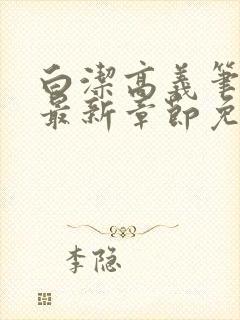 白潔高義筆
最新章節免
李隐